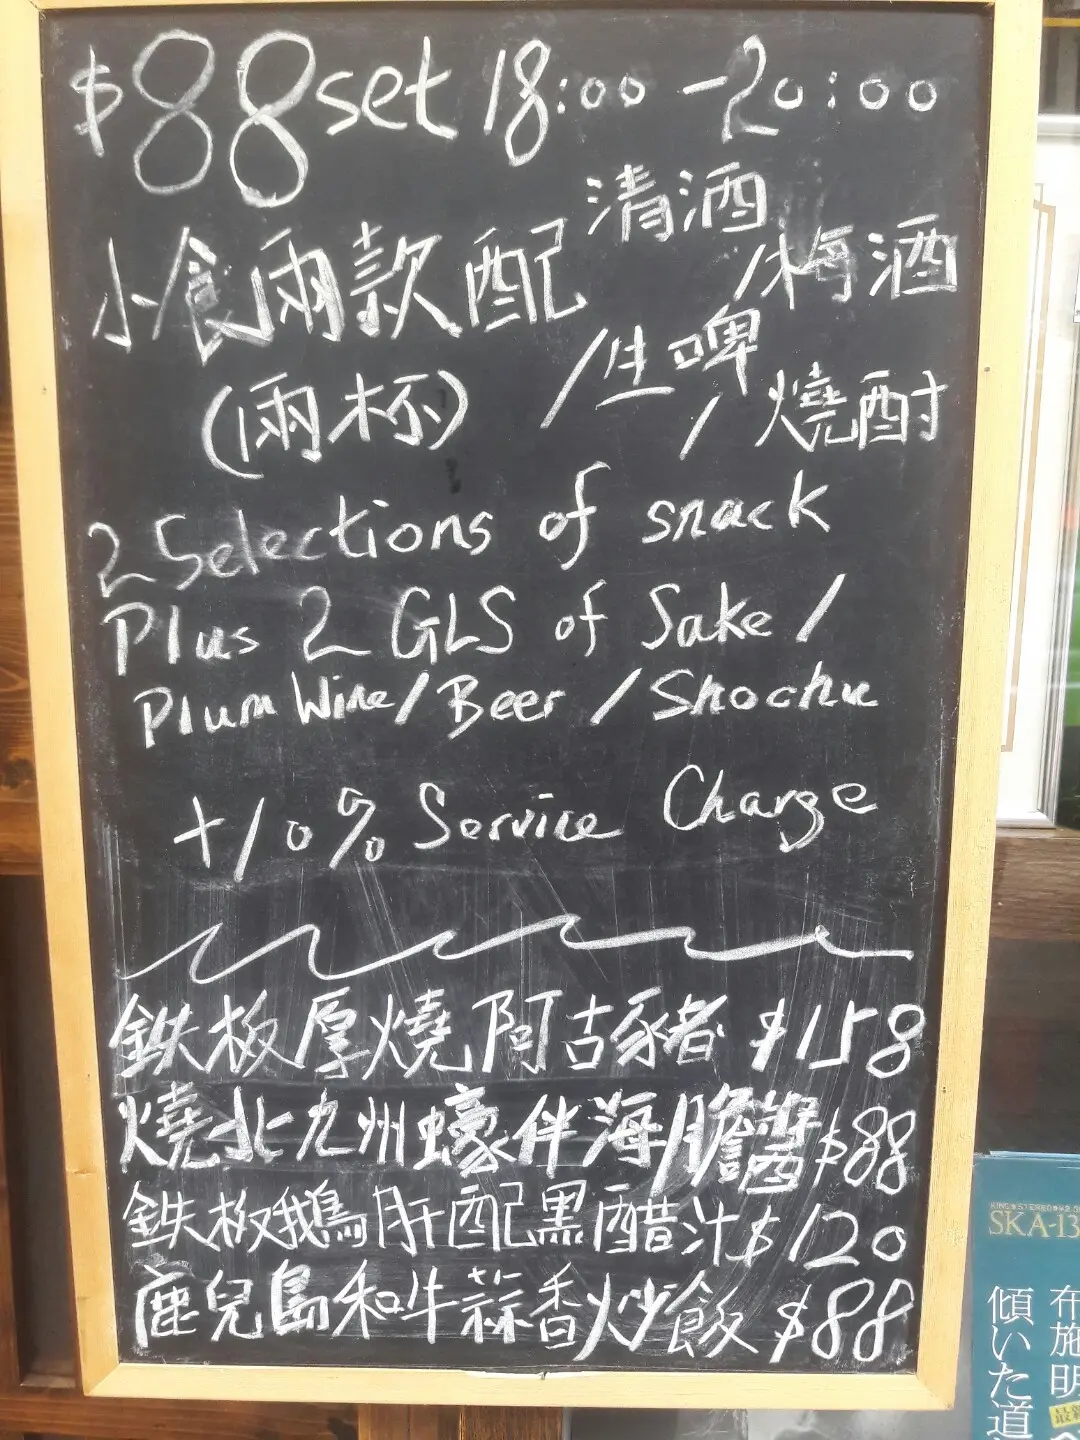 $88 set 18:00-20:00
小食兩款配 清酒/梅酒
(兩杯) /生啤/燒酎
2 Selections of snack
Plus 2 GLS of Sake /
Plum Wine/Beer/Shochu
+10% Service Charge
鉄板厚燒阿古豚豬 $158
燒北九州蠔伴海膽醬 $88
鉄板鵝肝配黑醋汁 $120
鹿兒島和牛蒜香炒飯 $88
SKA-13
傾いた道
布施明